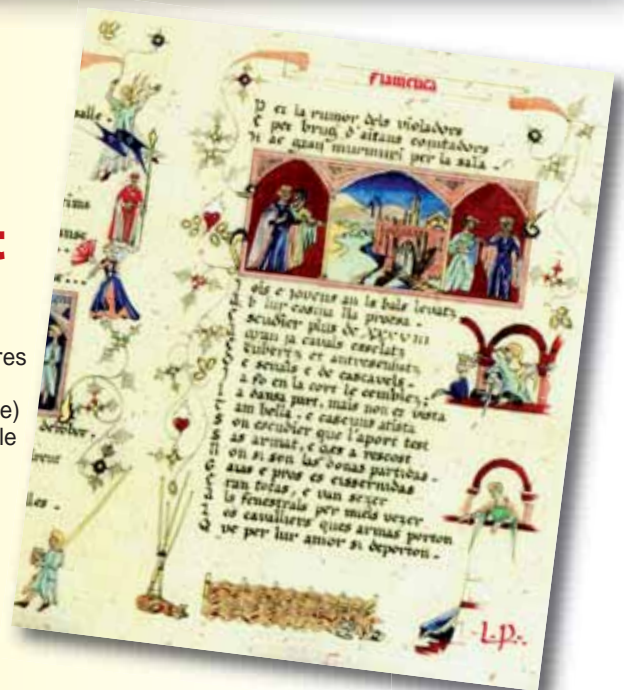 t
res
e)
le
salle.
rims
anse
devoher.
lles.
Flamenca
D et la rumor dels violadors
E per brug d'aitans comtadors
Hi ac gran murmuri per la sala.
ols e jovens an la bals levatz
b lur cosina lla proesa.
scudier plus de XXXVIII
avan ja cavals enselatz
cubertz et antresenhatz
e senals e de cascavels.
a fo en la cort le cemblez:
a dansa part, mais non es vista
am bella. e cascuns arista
on escudier que l'aport test
as armas, e das a rescost
on si son las donas partidas.
aus e pros es eissernidas
ran totas, e van sezer
la fenestrals per miels vezer
os cavalliers ques armas porton
ve per lur amor si deporton.
L.P.